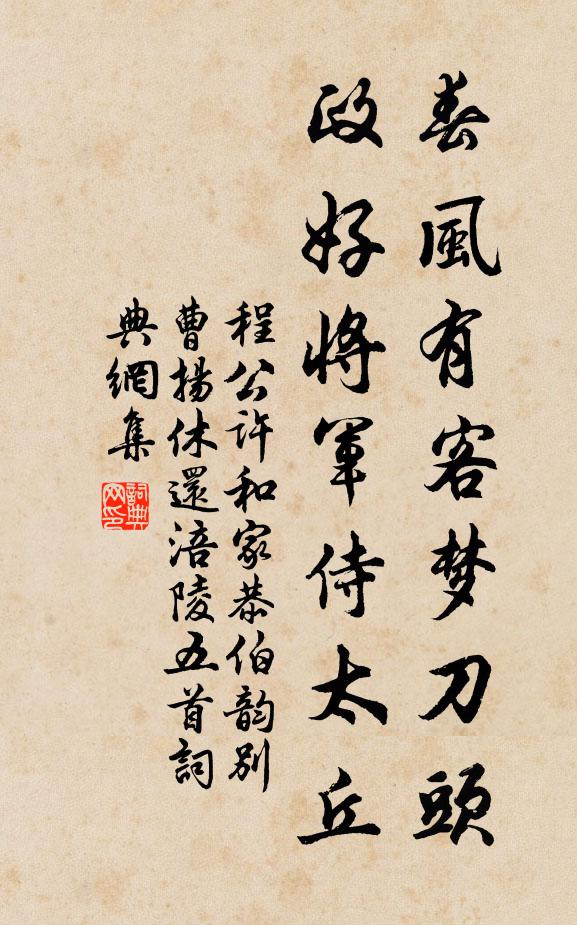 春風有客梦刀頭
政好将軍侍太丘
程公许和家恭伯韵别
曹揚休還涪陵五首詞
典網集
詞典网印